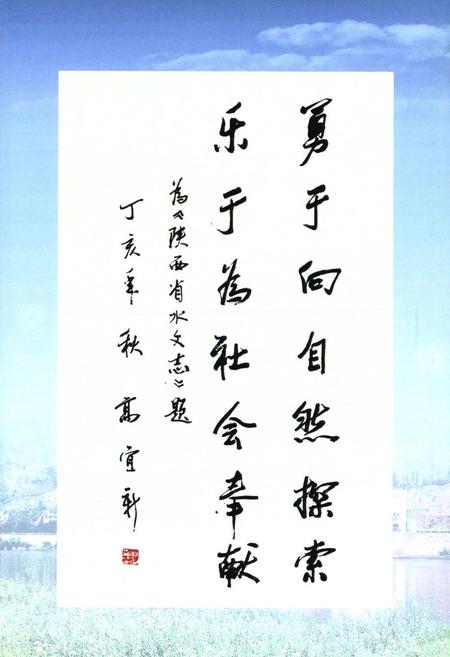 勇于向自然探索
乐于为社会奉献
为《陕西省水文志》题
丁亥年秋 高宜新